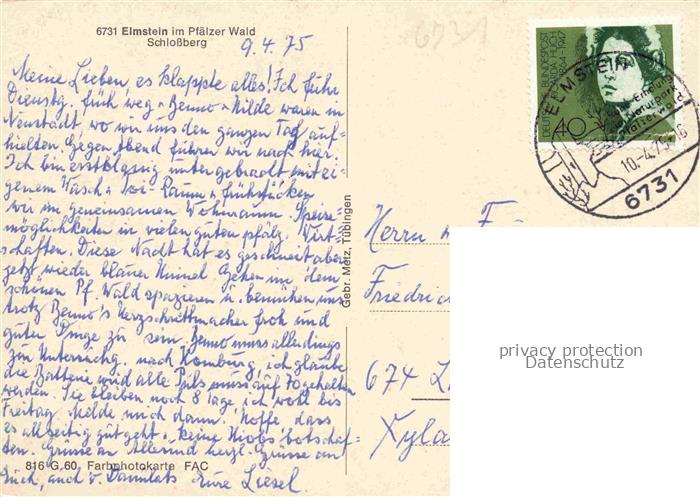 6731 Elmstein im Pfälzer Wald
Schloßberg
9.4.75
6731
Meine Lieben, es klappte alles! Ich fuhr
Dienstg. früh weg. Benno + Hilde waren in
Neustadt, wo wir uns den ganzen Tag auf-
hielten. Gegen Abend fuhren wir nach hier.
Ich bin erstklassig untergebracht mit ei-
genem Wasch u. Frühstücken
wir im gemeinsamen Wohnraum. Speise-
möglichkeiten in vielen guten pfälz. Wirt-
schaften. Diese Nacht hat es geschneit aber
jetzt wieder blauer Himmel. Gehen in dem
schönen Pf. Wald spazieren u. bemühen uns
trotz Benno's Herzschrittmacher froh und
guter Dinge zu sein. Benno muss allerdings
zur Untersuchg. nach Homburg, ich glaube
die Batterie wird alle Puls muss auf 70 gehalten
werden. Sie bleiben noch 8 Tage, ich wohl bis
Freitag. Melde mich dann. Hoffe, dass
es allzeitig gut geht. keine Hiobs'botschaf-
ten. Grüsse an Allemand herzl. Grüsse an
Euch, auch v. Eure Liesel.
816 G 60 Farbphotokarte FAC
Gebr. Metz, Tübingen
DEUTSCHE BUNDESPOST
RICARDA HUCH
1864-1947
40
ELMSTEIN
Erholung
Naturpark
Pfälzerwald
10.-4.75-16
6731
Herrn
Friedric
674 L
Xyla
privacy protection
Datenschutz